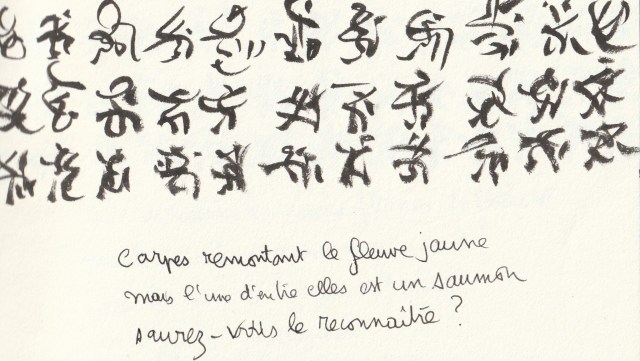 carpes remontant le fleuve jaune
mais l'une d'entre elles est un saumon
saurez-vous le reconnaître ?